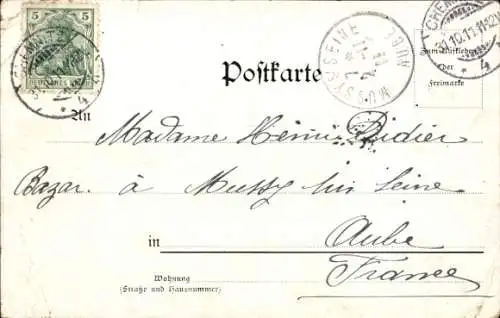 5
DEUTSCHES REICH
CHEMNITZ
4
MUSSY-S-SEINE
AUBE
CHEMNITZ
30.10.11
4
Zum Aufkleben
der
Freimarke
Postkarte
An
Madame Henri Didier
Bazar. à Mussy sur Seine
in Aube
France
Wohnung
(Straße und Hausnummer)